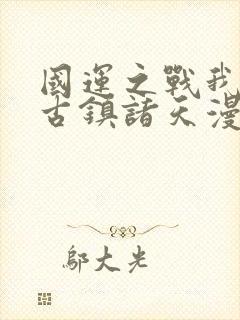 國運之戰我
古鎮諸天漫
鄔大光